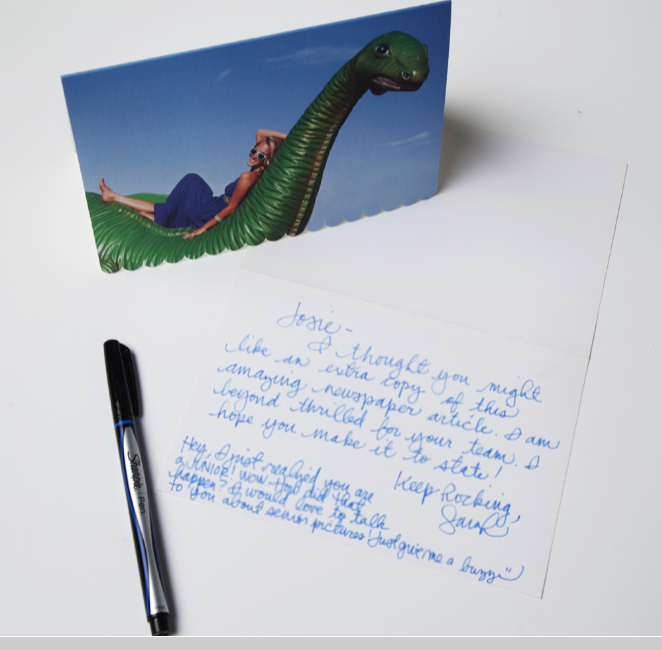 Josie-
I thought you might
like an extra copy of this
amazing newspaper article. I am
beyond thrilled for your team. I
hope you make it to state!
Keep Rocking,
Sarah
Hey, I just realized you are
a JUNIOR! WOW-HOW did that
happen? I would love to talk
to you about senior pictures! Just give me a buzz "
Sharpie Pen